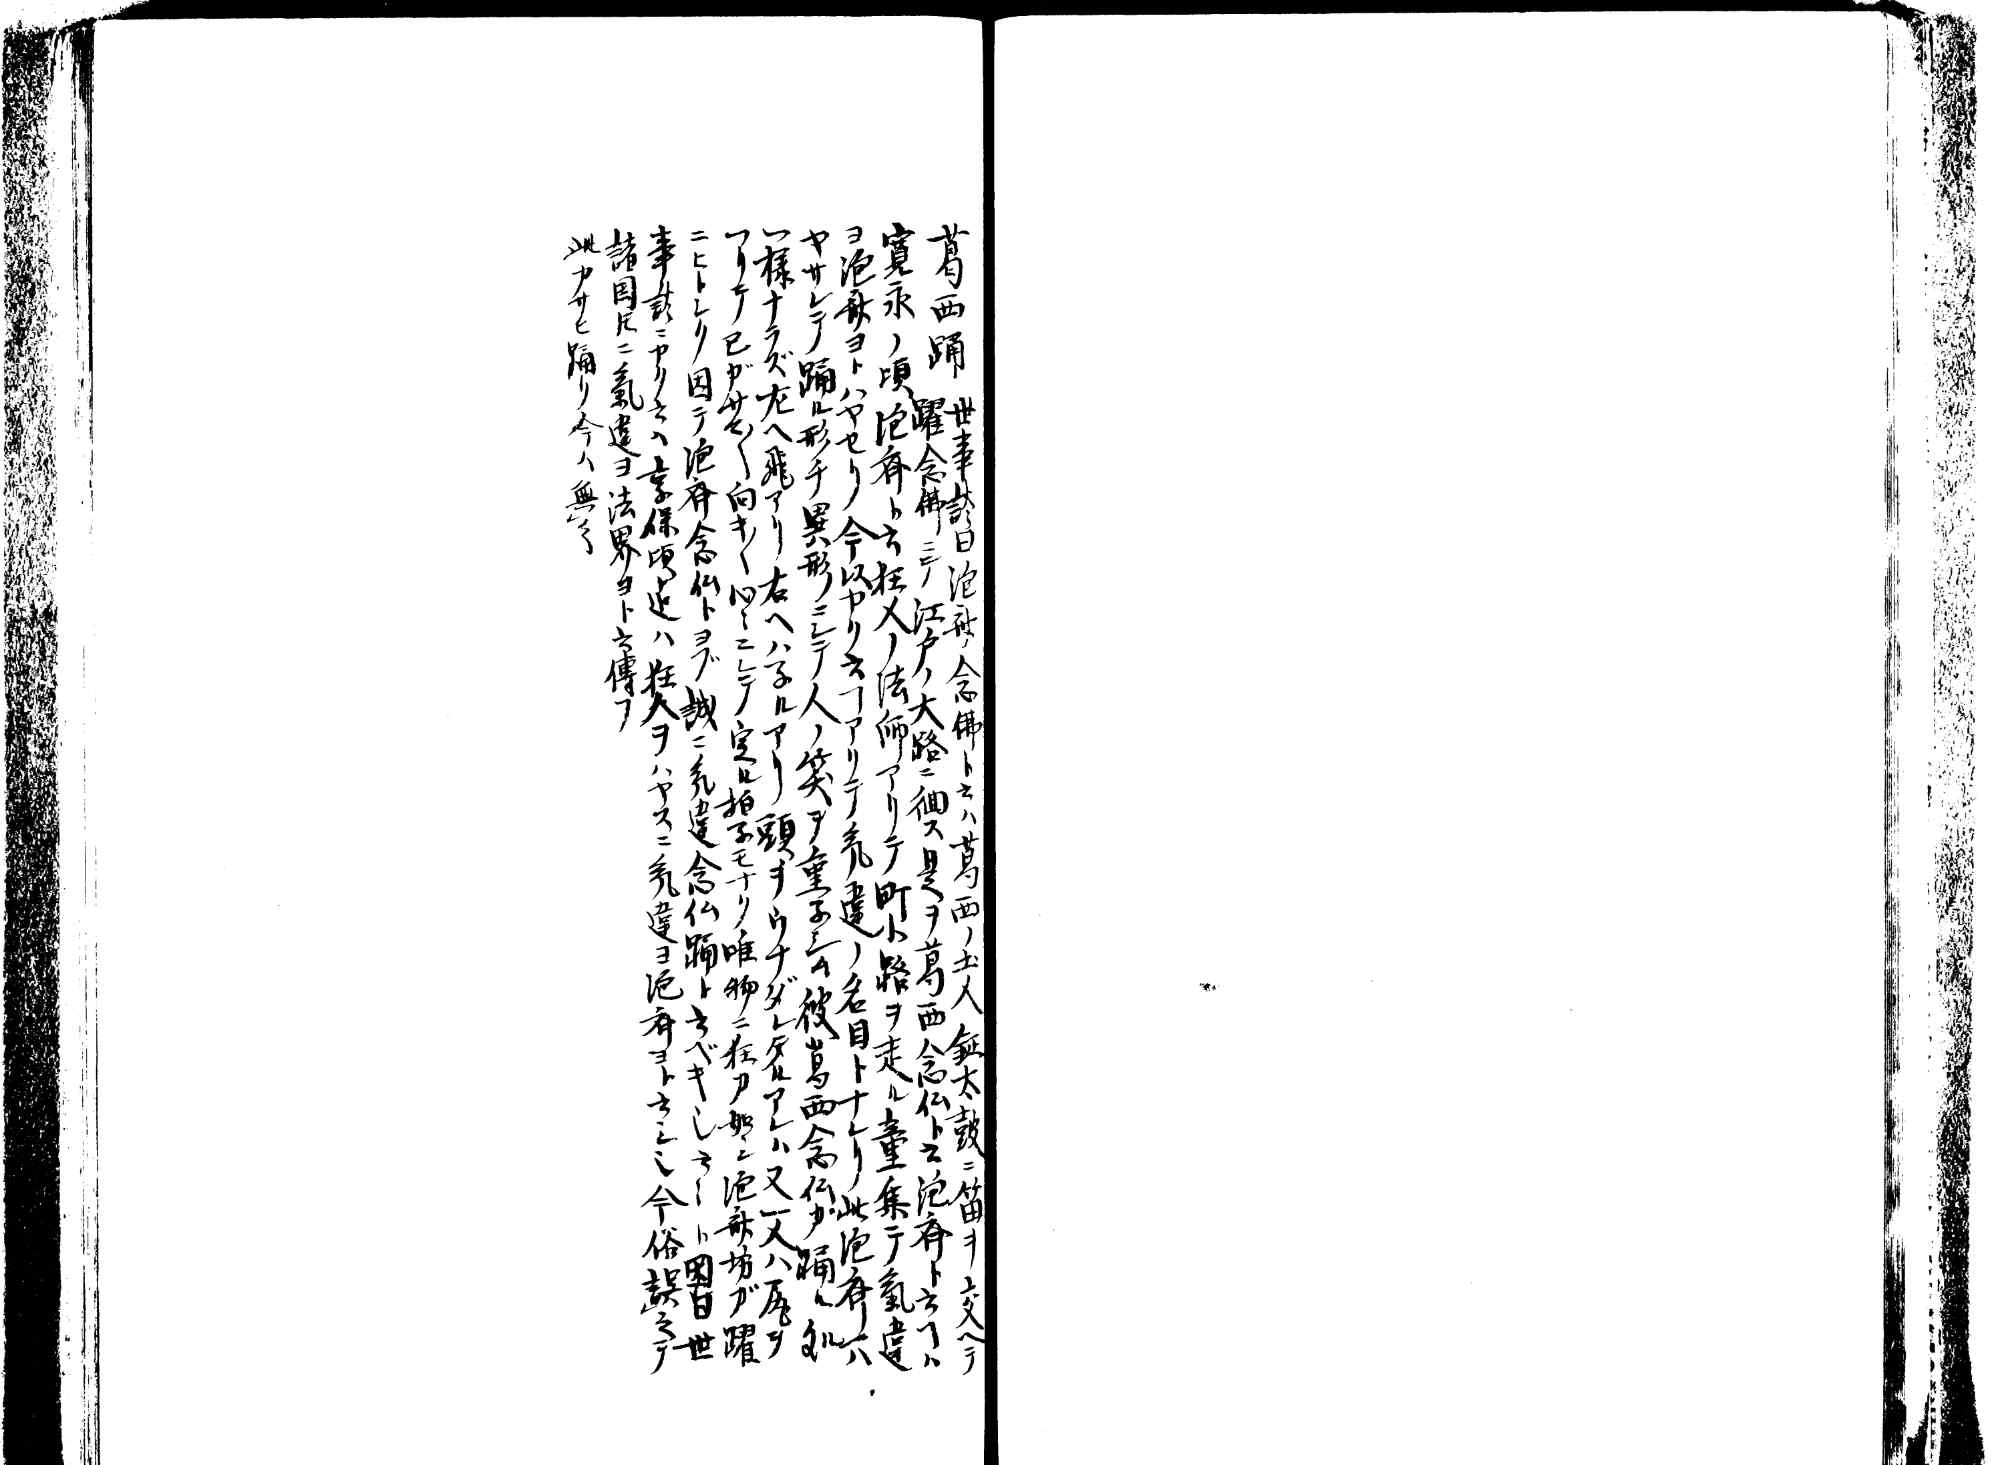 葛西踊 世事談曰泡斎念佛ト云ハ葛西ノ土人鉦太鼓ニ笛ヲ交ヘテ
躍念佛シテ江戸ノ大路ニ徊ス是ヲ葛西念仏ト云泡斎ト云ヿハ
寛永ノ頃泡斎ト云狂人ノ法師アリテ町小路ヲ走ル童集テ氣違
ヨ泡斎ヨトハヤセリ今以ヤリ云ヿアリテ気違ノ名目トナレリ此泡斎ハ
ヤサレテ踊ル形チ異形ニシテ人ノ笑ヲ重子シム彼葛西念仏ガ踊ル
一様ナラズ左ヘ飛アリ右ヘハ子ルアリ頭ヲウナダレタルアレハ又一人ハ尻ヲ
フリテ己ガサマ〱向キ〱心〻ニシテ定ル拍子モナリ唯物ニ狂フ如シ泡斎坊ガ躍
ニヒトシリ因テ泡斎念仏トヨブ誠ニ気違念仏踊ト云ベキ云〱ト因曰世
事談ニヤリ云ハ享保頃迠ハ狂人ヲハヤスニ気違ヨ泡斎ヨト云シ今俗誤テ
諸国トモニ氣違ヨ法界ヨト云傳フ
此カサヒ踊リ今ハ無シ